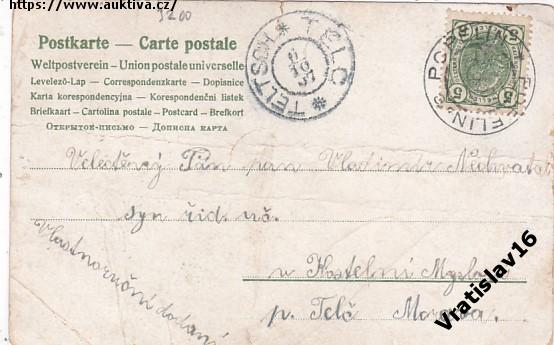 https://www.auktiva.cz/
3200
Postkarte — Carte postale
Weltpostverein – Union postale universelle
Levelező-Lap — Correspondenzkarte — Dopisnice
Karta korespondencyjna — Korespondenční listek
Briefkaart – Cartolina postale – Postcard – Brefkort
Открытое-письмо — Дописна карта
TELTSCH * TELČ *
5 5
Veletěný Pán pan Vladimír
syn říd. uč.
Vlastnoruční dodání
v Kostelní Myslo
p. Telč Morava.
Vratislav16